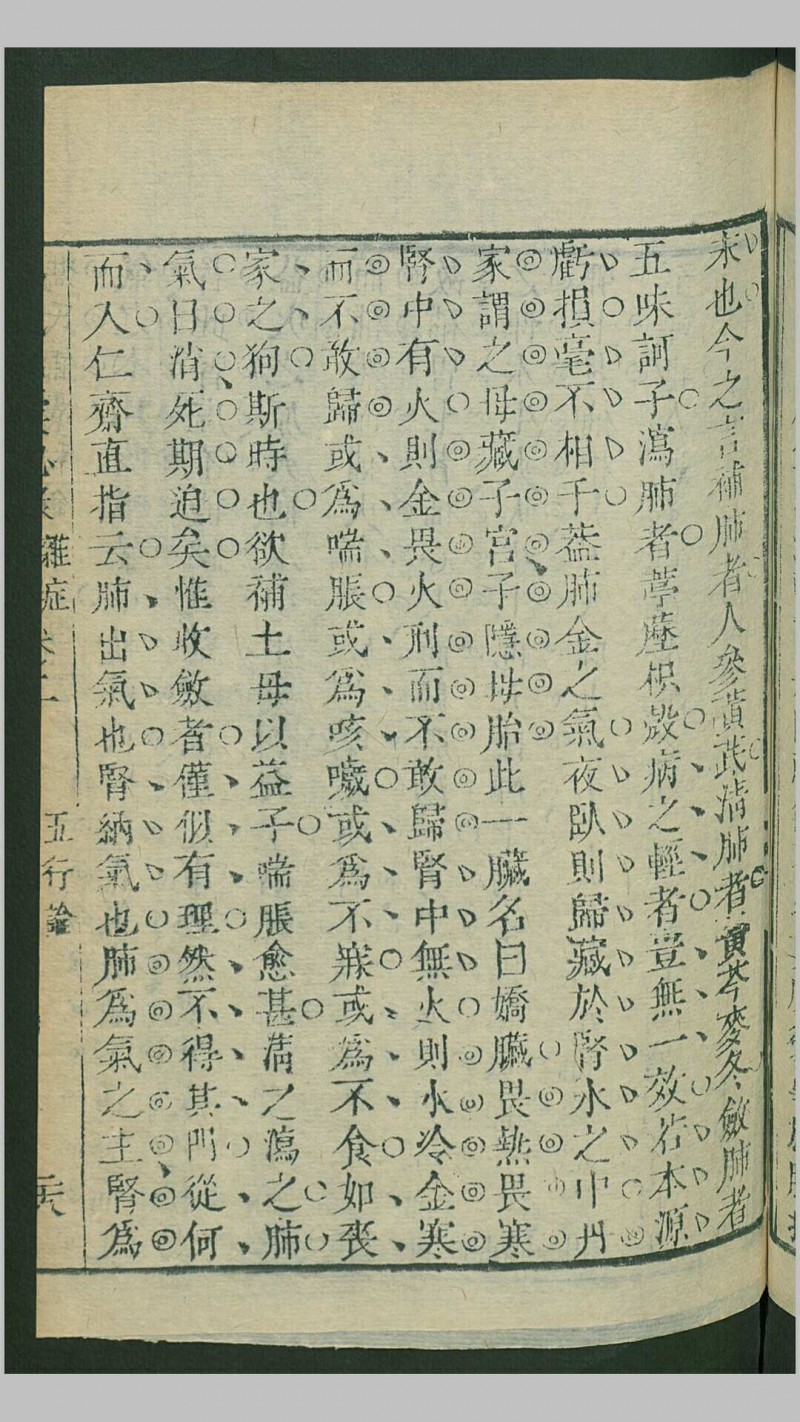 未也今之言補肺者人參黃芪清肺者黃芩麥冬斂肺者
五味訶子瀉肺者葶藶枳殼病之輕者豈無一效若本源
虧損毫不相干葢肺金之氣夜臥則歸藏於腎水之中丹
家謂之母藏子宮子隱母胎此一臟名曰嬌臟畏熱畏寒
腎中有火則金畏火刑而不敢歸腎中無火則水冷金寒
而不敢歸或爲喘脹或爲咳噦或爲不寐或爲不食如喪
家之狗斯時也欲補土母以益子喘脹愈甚清之瀉之肺
氣日消死期迫矣惟收斂者僅似有理然不得其門從何
而入仁齋直指云肺出氣也腎納氣也肺爲氣之主腎爲
雜症
五行論